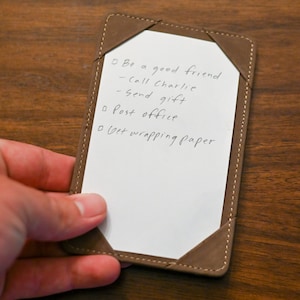 □ Be a good friend
- Call Charlie
- Send gift
□ Post office
□ Get wrapping paper